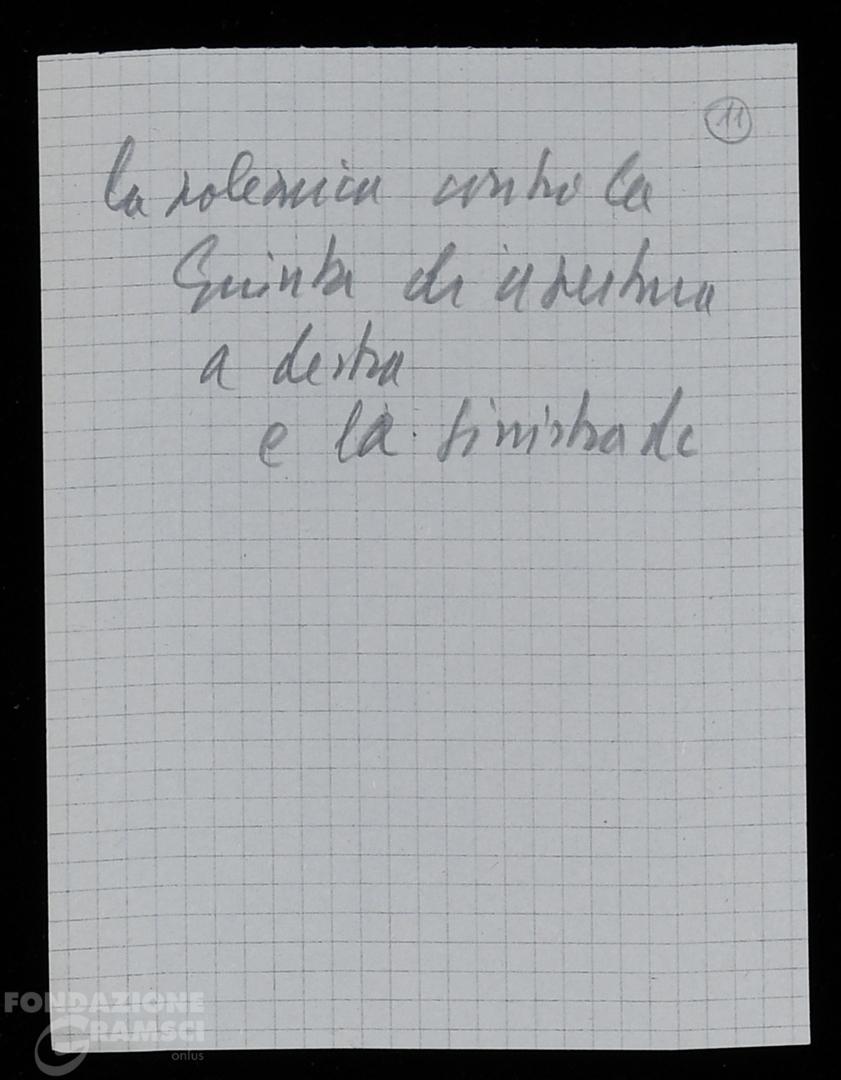 11
la polemica contro la
Giunta di apertura
a destra
e la sinistra dc
FONDAZIONE
GRAMSCI
onlus